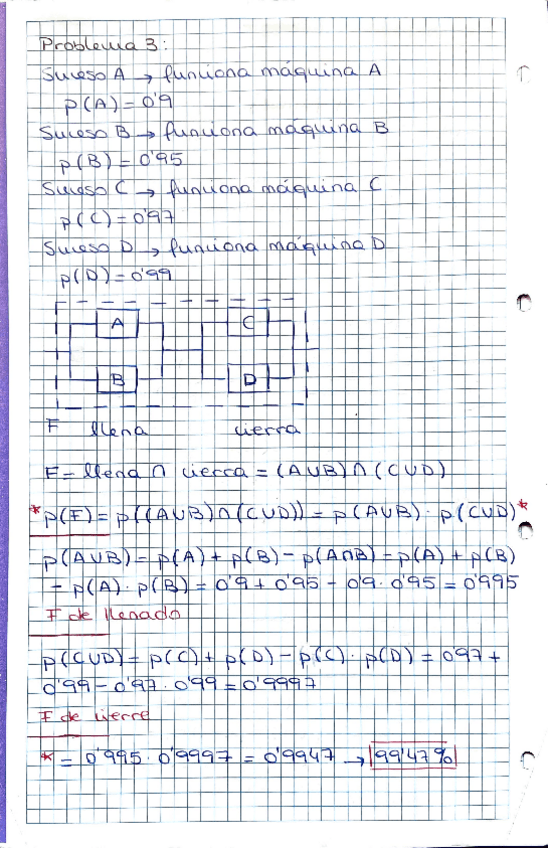 Problema 3:
Suceso A → funciona máquina A
p(A) = 0'9
Suceso B → funciona máquina B
p(B) = 0'95
Suceso C → funciona máquina C
p(C) = 0'97
Suceso D → funciona máquina D
p(D) = 0'99
A C
B D
F llena cierra
F = llena ∩ cierra = (A∪B)∩(C∪D)
* p(F) = p((A∪B)∩(C∪D)) = p(A∪B) · p(C∪D) *
p(A∪B) = p(A) + p(B) - p(A∩B) = p(A) + p(B)
- p(A) · p(B) = 0'9 + 0'95 - 0'9 · 0'95 = 0'995
F de llenado
p(C∪D) = p(C) + p(D) - p(C) · p(D) = 0'97 +
0'99 - 0'97 · 0'99 = 0'9997
F de cierre
* = 0'995 · 0'9997 = 0'9947 → 99'47%